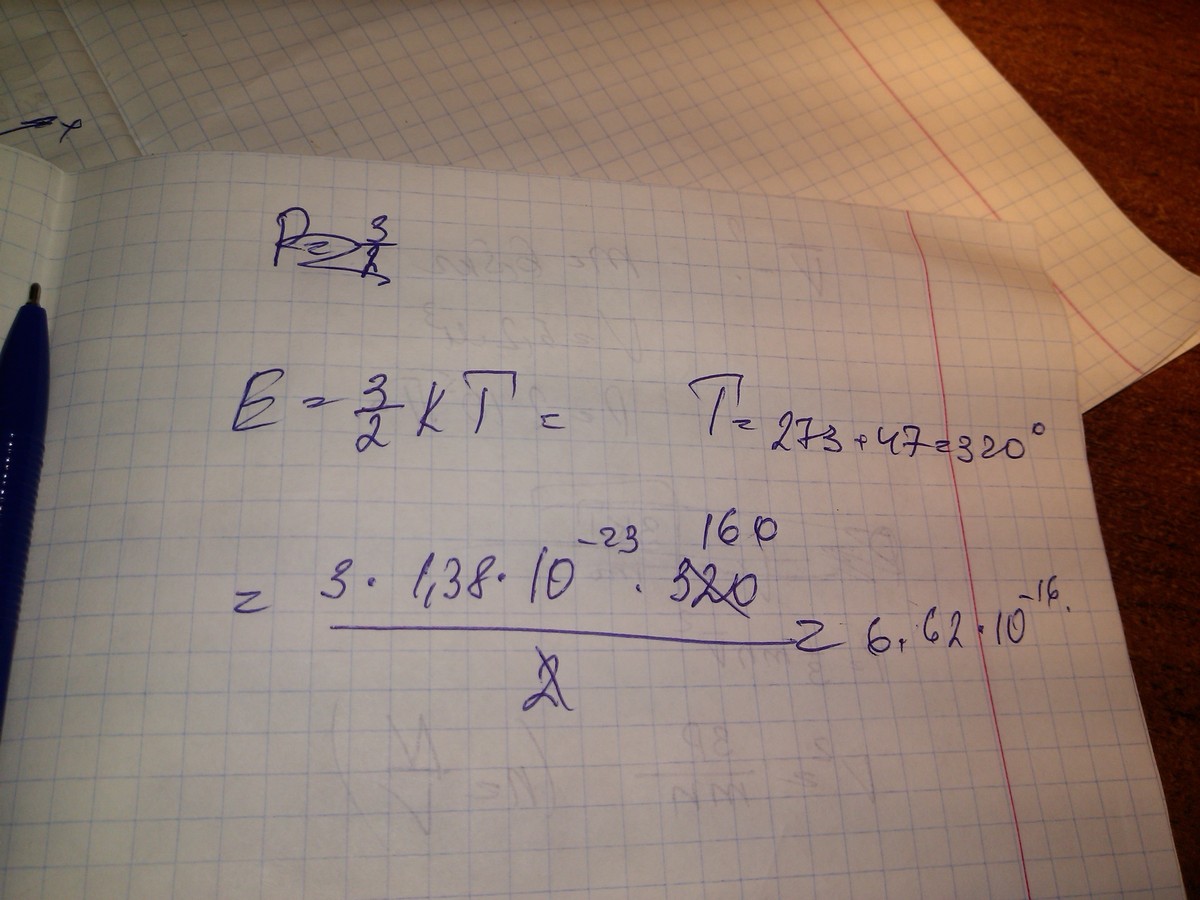 E = 3/2 K T = T = 273 + 47 = 320°
= 3 · 1,38 · 10^-23 · 320 160 / 2 = 6,62 · 10^-16.